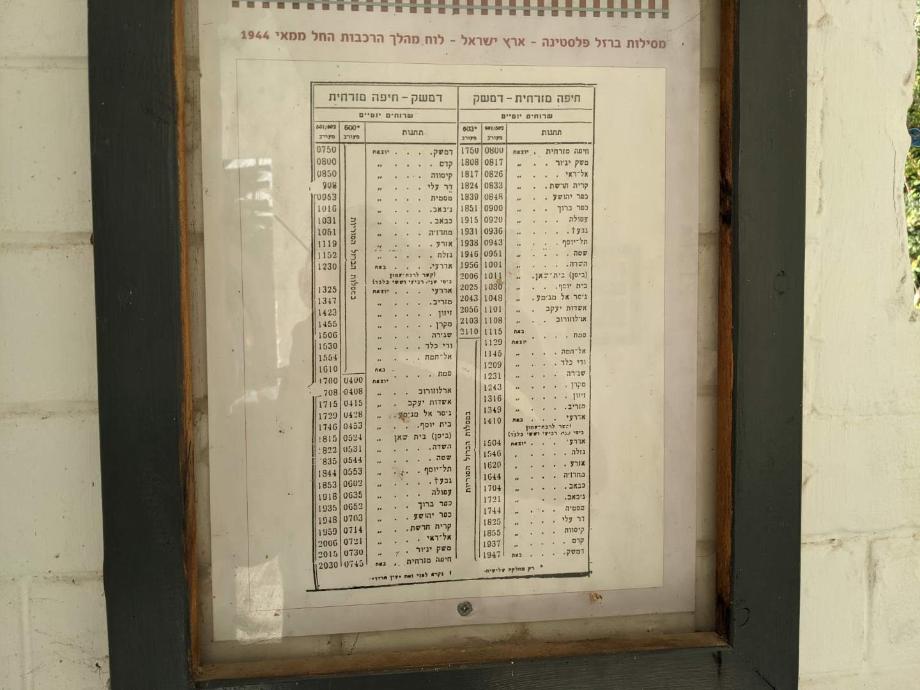 מסילות ברזל פלסטינה - ארץ ישראל - לוח מהלך הרכבות החל ממאי 1944
חיפה מזרחית - דמשק
שרותים יומיים
603* 601/602 תחנות
מעורב מעורב
1750 0800 חיפה מזרחית . יוצאת
1808 0817 משק יגור . . . "
1817 0826 אל-ראי . . . . "
1824 0833 קרית חרשת . . . "
1839 0848 כפר יהושע . . . "
1851 0900 כפר ברוך . . . "
1915 0920 עפולה . . . . "
1931 0936 גבע† . . . . "
1938 0943 תל-יוסף . . . "
1946 0951 שטה . . . . "
1956 1001 השדה . . . . "
2006 1011 (ביסן) בית שאן . "
2025 1030 בית יוסף . . . "
2043 1048 גיסר אל מג'מע . "
2056 1101 אשדות יעקב . . "
2103 1108 ארלוזורוב . . . "
2110 1115 צמח . . . . באה
1129 יוצאת
1145 אל-חמה . . . "
1209 ודי כליד . . . "
1231 שג'רה . . . . "
1243 מקרן . . . . "
1316 זיזון . . . . "
1349 מזריב . . . . "
1410 אדרעי . . . באה
1504 אדרעי . . . יוצאת
1546 גזלה . . . . "
1620 אזרע . . . . "
1644 מחדזיה . . . "
1704 כבאב . . . . "
1721 ג'באב . . . . "
1744 מסמיה . . . . "
1825 דר עלי . . . . "
1855 קיסווה . . . . "
1937 קדם . . . . "
1947 דמשק . . . . באה
במסלות הברזל הסוריות
* רק מחלקה שלישית.
דמשק - חיפה מזרחית
שרותים יומיים
601/602 600* תחנות
מעורב מעורב
0750 דמשק . . . . יוצאת
0800 קדם . . . . "
0850 קיסווה . . . . "
908 דר עלי . . . . "
0953 מסמיה . . . . "
1016 ג'באב . . . . "
1031 כבאב . . . . "
1051 מחדזיה . . . "
1119 אזרע . . . . "
1152 גזלה . . . . "
1230 אדרעי . . . באה
1325 אדרעי . . . יוצאת
1347 מזריב . . . . "
1423 זיזון . . . . "
1455 מקרן . . . . "
1506 שג'רה . . . . "
1530 ודי כליד . . . "
1554 אל-חמה . . . "
1610 צמח . . . . באה
1700 0400 יוצאת
708 0408 ארלוזורוב . . . "
1715 0415 אשדות יעקב . . "
1729 0428 גיסר אל מג'מע . "
1746 0453 בית יוסף . . . "
1815 0524 (ביסן) בית שאן . "
1822 0531 השדה . . . . "
1835 0544 שטה . . . . "
1844 0553 תל-יוסף . . . "
1853 0602 גבע† . . . . "
1918 0635 עפולה . . . . "
1935 0652 כפר ברוך . . . "
1948 0703 כפר יהושע . . . "
1959 0714 קרית חרשת . . . "
2006 0721 אל-ראי . . . . "
2015 0730 משק יגור . . . "
2030 0745 חיפה מזרחית . . באה
במסלות הברזל הסוריות
† נקרא לפני זאת עין חרוד.